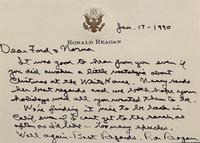 Jan. 17 - 1990
RONALD REAGAN
Dear Ford & Norma
It was good to hear from you even if
you did awaken a little nostalgia about
Christmas at the White House. Nancy sends
her best regards and we both hope your
holidays were all you wanted them to be.
We're finding it nice to be back in
Calif. even if I can't get to the ranch as
often as I'd like - too many speeches.
Well again Best Regards, Ron Reagan